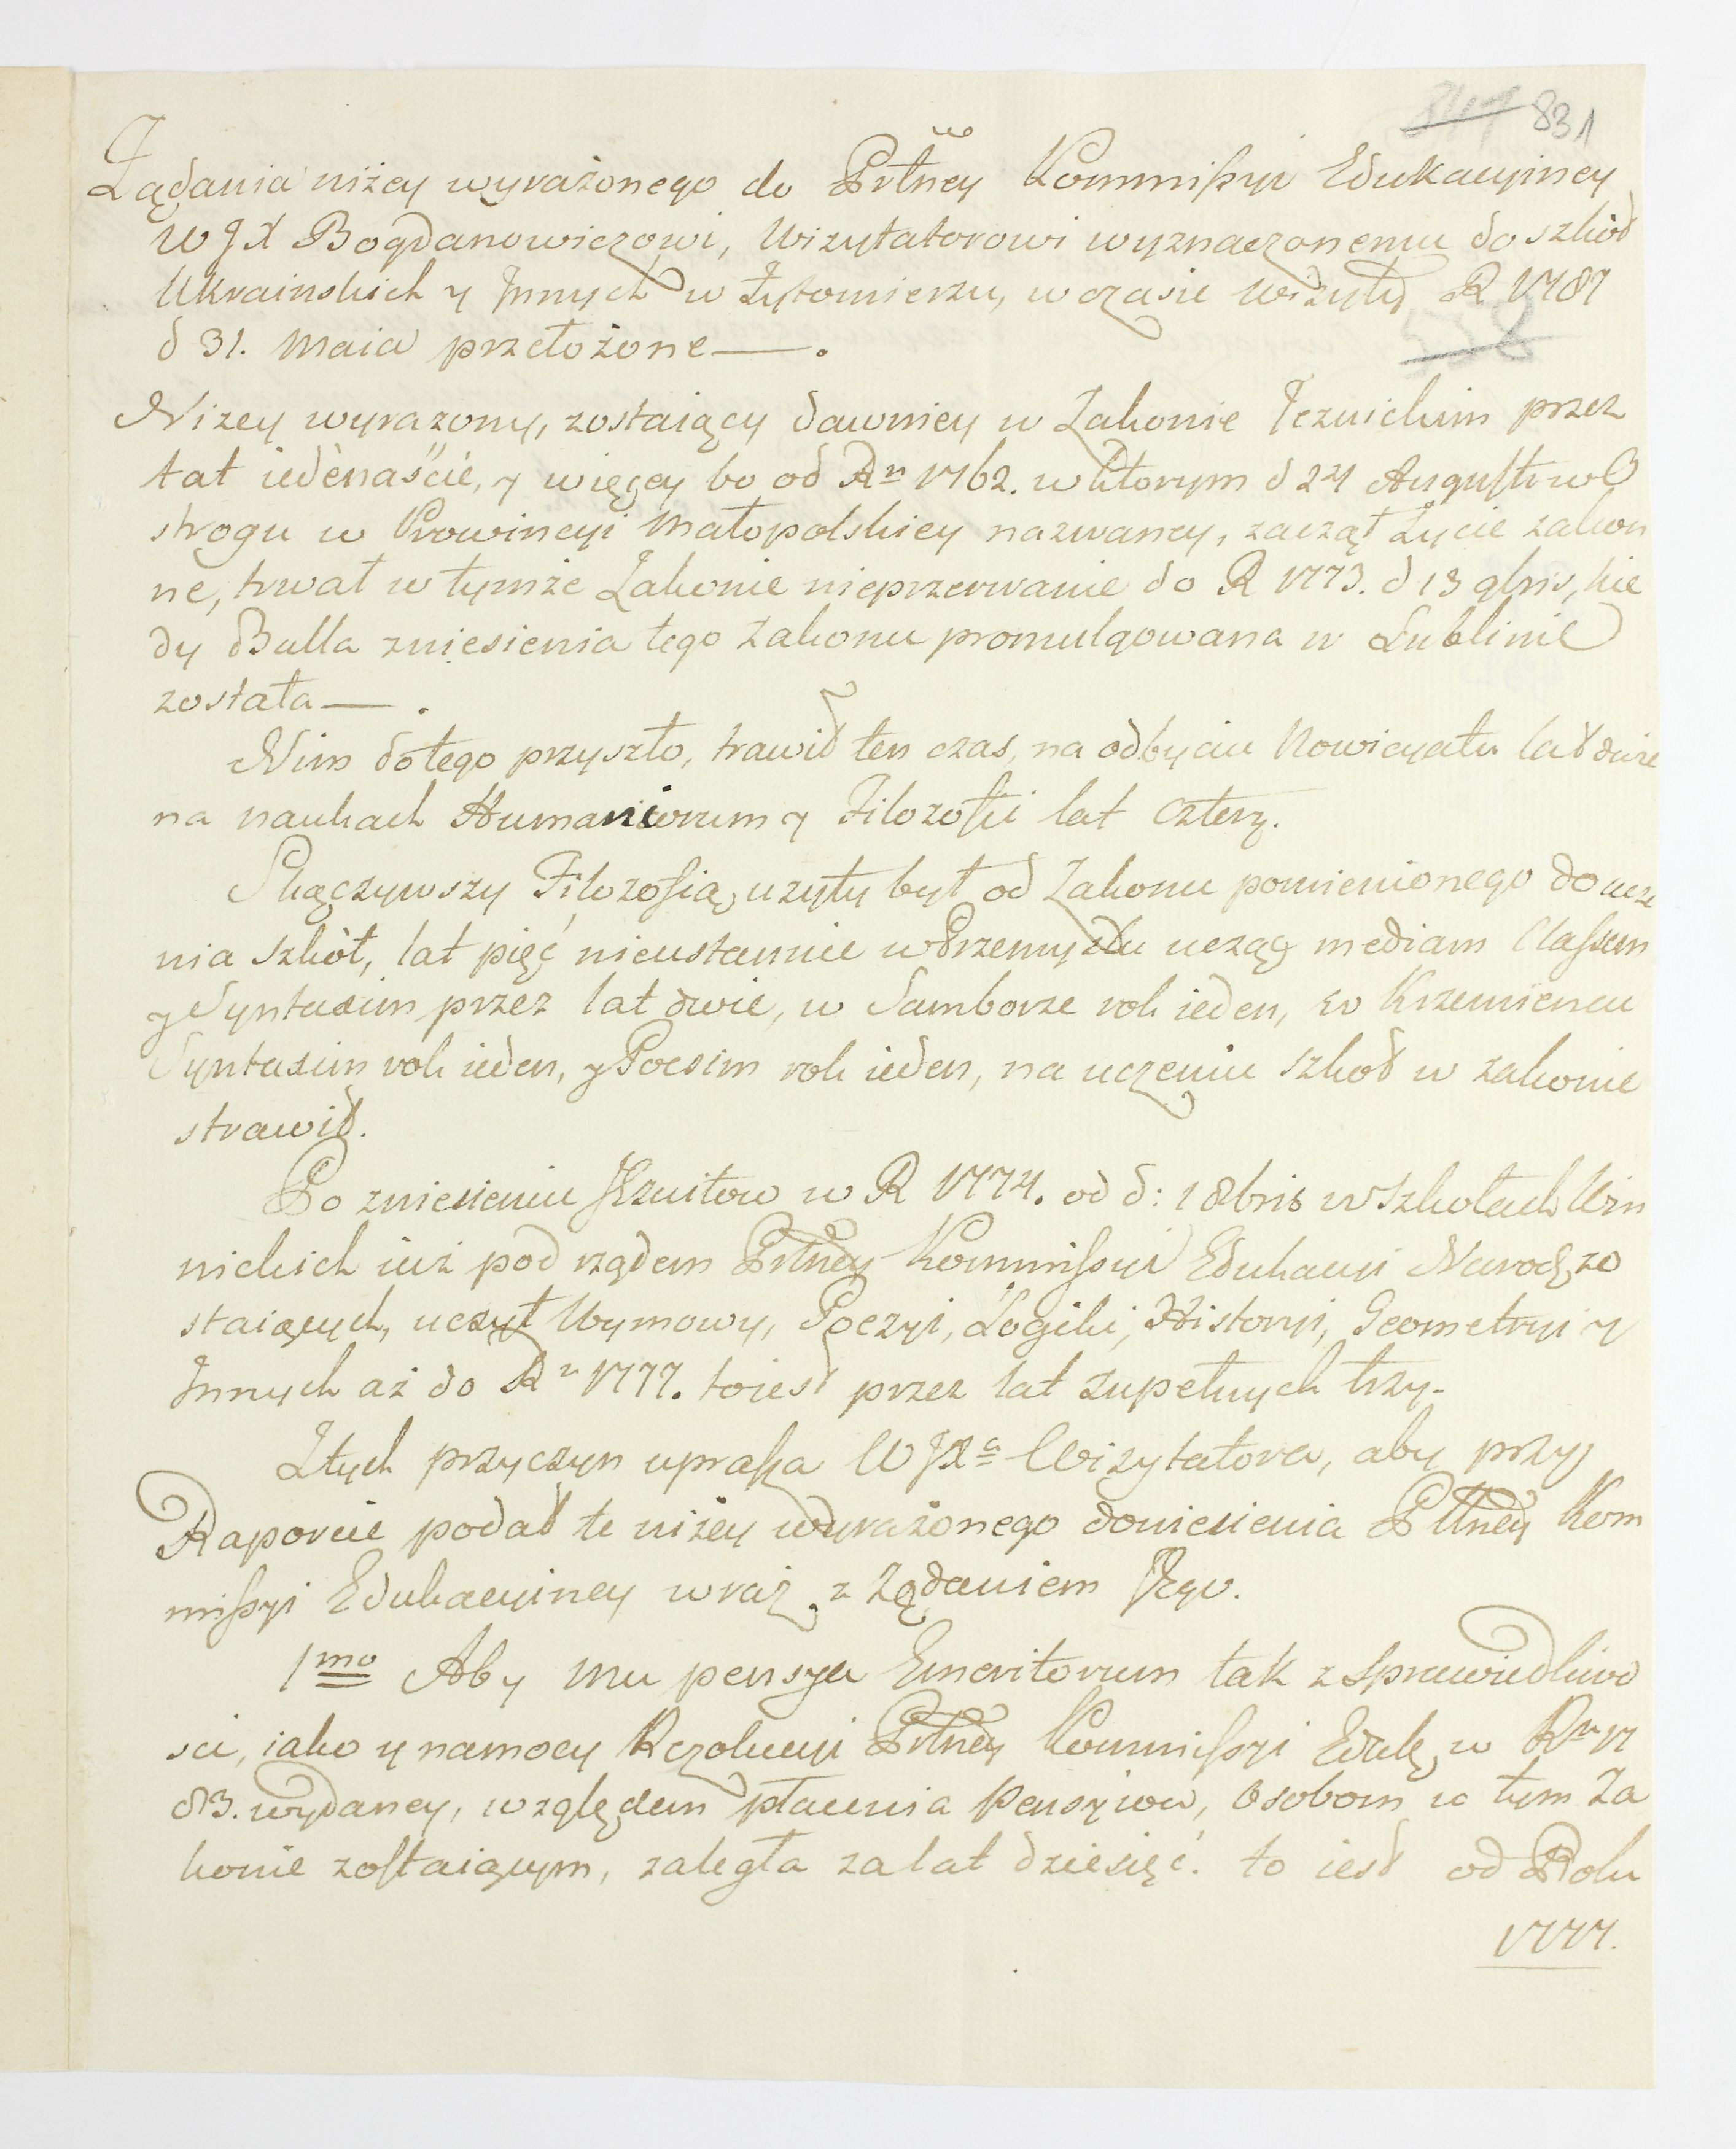 831
Żądania niżey wyrażonego do Prłney Kommissyi Edukacyiney
W J X Bogdanowiczowi, Wizytatorowi wyznaczonemu do szkół
Ukrainskich y Innych w Żytomierzu, w czasie Wizyty R 1787
d 31. Maia przełożone —.
Niżey wyrazony, zostaiący dawniey w Zakonie Jezuickim przez
lat iedenaście, y więcey bo od Ru 1762. w ktorym d 24 Augusti w O
strogu w Prowincyi Małopolskiey nazwaney, zaczął Życie zakon
ne, trwał w tymże Zakonie nieprzerwanie do R 1773. d 13 9bris, kie
dy Bulla zniesienia tego Zakonu promulgowana w Lublinie
została —.
Nim do tego przyszło, trawił ten czas, na odbyciu Nowicyatu lat dwie
na naukach Humaniorum y Filozofii lat cztery.
Skączywszy Filozofią, uzyty był od Zakonu pomienionego do ucze
nia szkół, lat pięć nieustannie w Przemyslu ucząc mediam Classem
y Syntaxim przez lat dwie, w Samborze rok ieden, w Krzemiencu
Syntaxim rok ieden, y Poesim rok ieden, na uczeniu szkoł w zakonie
strawił.
Po zniesieniu Jezuitow w R 1774. od d: 1 8bris w Szkołach Win
nickich iuż pod rządem Prłney Kommissyi Edukacyi Narod, zo
staiących, uczył Wymowy, Poezyi, Logiki, Historyi, Geometryi y
Innych aż do Ru 1777. toiest przez lat zupełnych trzy.
Z tych przyczyn uprasza W J Xa Wizytatora, aby przy
Raporcie podał te niżey wyrażonego doniesienia Prłney Kom
missyi Edukacyiney wraz z Żądaniem Jego.
1mo Aby mu pensya Emeritorum tak z sprawiedliwo
sci, iako y namocy Rezolucyi Prłney Kommissyi Eduk, w Ru 17
83. wydaney, względem płacenia Pensyiow, Osobom w tym Za
konie zostaiącym, zaległa za lat dziesięć. to iest od Roku
1777.